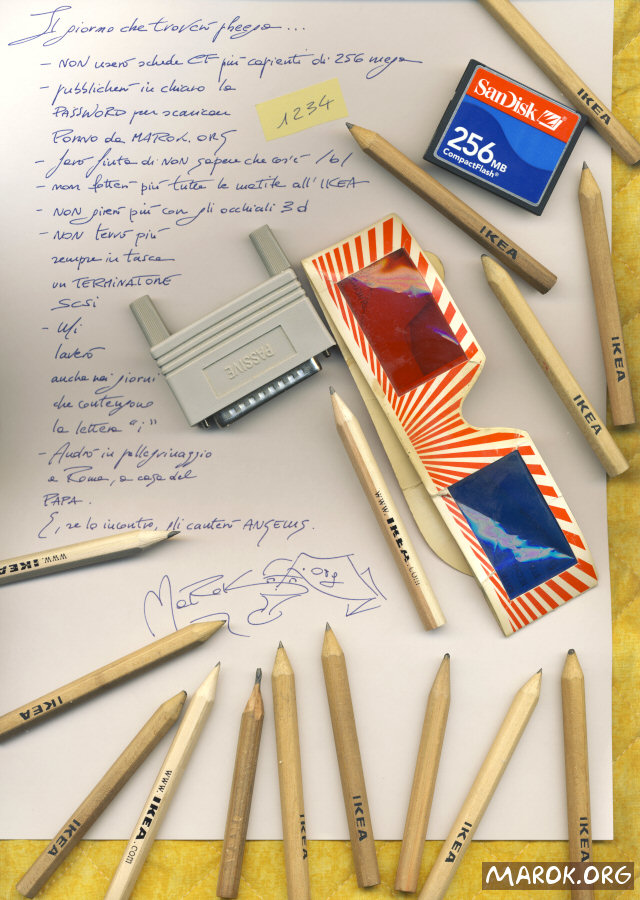 Il giorno che troverò pheega...
- NON userò schede CF più capienti di 256 mega
- pubblicherò in chiaro la
PASSWORD per scaricare
Porno da MAROK.ORG
- farò finta di NON sapere che cos'è /b/
- non fotterò più tutte le matite all'IKEA
- NON girerò più con gli occhiali 3d
- NON terrò più
sempre in tasca
un TERMINATORE
SCSI
- Mi
laverò
anche nei giorni
che contengono
la lettera "i"
- Andrò in pellegrinaggio
a Roma, a casa del
PAPA.
E, se lo incontro, gli canterò ANGELUS.
MaRoK .org
1234
SanDisk
256MB
CompactFlash
PASSIVE
IKEA
IKEA
IKEA
IKEA
www.IKEA.com
www.IKEA
IKEA
IKEA
www.IKEA.com
IKEA
IKEA
IKEA
IKEA
MAROK.ORG